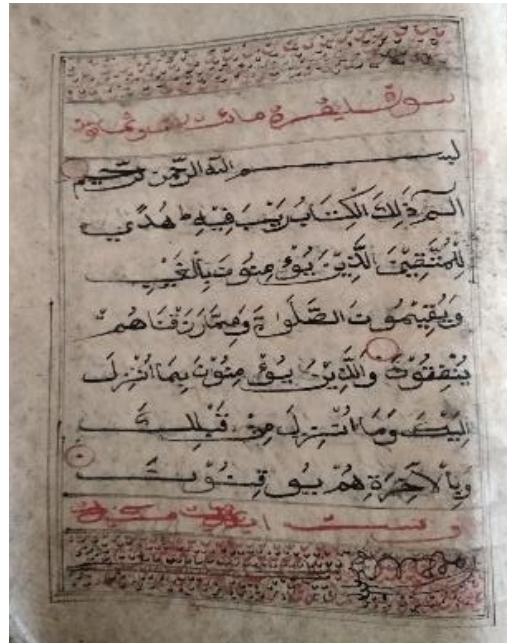 سورة البقرة مائت
بسم الله الرحمن الرحيم
الم ذَلِكَ الْكِتَابُ رَيْبَ فِيهِ ط هُدًي
لِلْمُتَّقِينَ الَّذِينَ يُؤْمِنُونَ بِالْغَيْبِ
وَيُقِيْمُونَ الصَّلَوٰةَ وَمِمَّا رَزَقْنَاهُمْ
يُنْفِقُوْنَ وَالَّذِيْنَ يُؤْمِنُوْنَ بِمَا اُنْزِلَ
اِلَيْكَ وَمَا اُنْزِلَ مِنْ قَبْلِكَ
وَبِالْاَخِرَةِ هُمْ يُوْقِنُوْنَ
وست